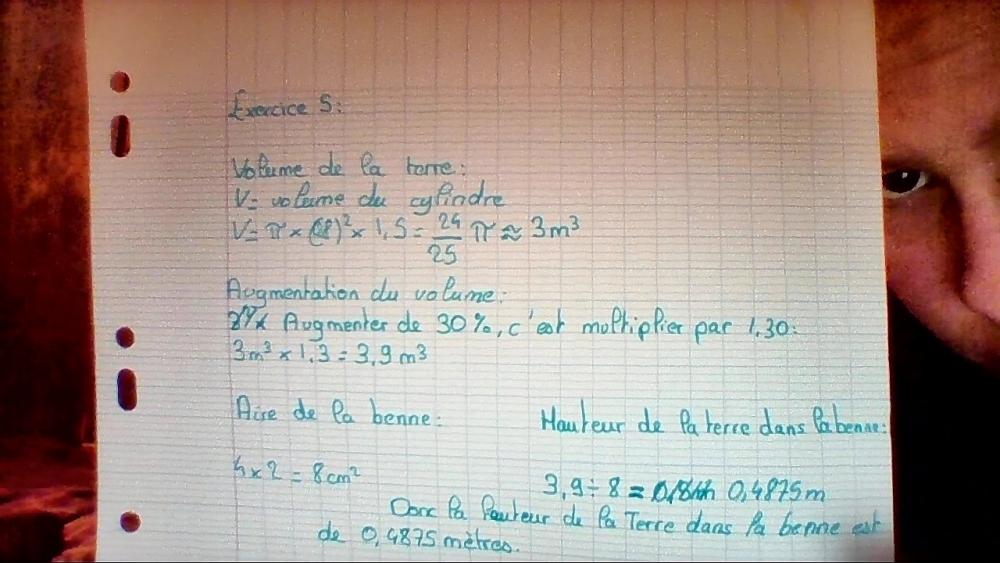 Exercice 5:
Volume de la terre:
V= volume du cylindre
V= π × (0,8)² × 1,5 = 24/25 π ≈ 3m³
Augmentation du volume:
Augmenter de 30%, c'est multiplier par 1,30:
3m³ × 1,3 = 3,9 m³
Aire de la benne:
4 × 2 = 8cm²
Hauteur de la terre dans la benne:
3,9 ÷ 8 = 0,4875m
Donc la hauteur de la Terre dans la benne est
de 0,4875 mètres.